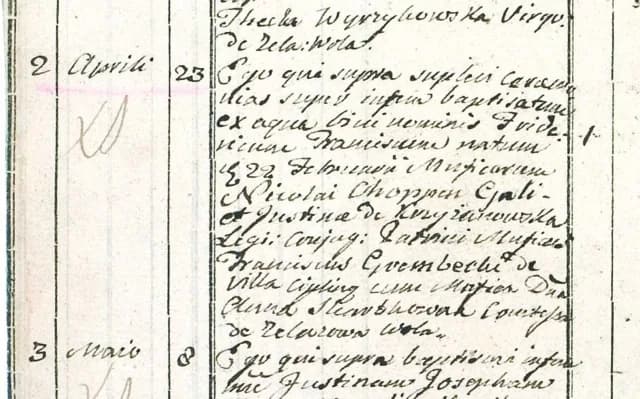 Thecla Wyrzykowska Virgo.
de Zela: Wola.
2 Aprili 23 Ego qui supra suplevi ceremo
nias super infan baptisatum
ex aqua bini nominis Fride-
ricum Franciscum natum
22 Februarii Magnificorum
Nicolai Choppen Gali-
et Justinæ de Krzyżanowska
Legi: Conjug: Patrini Mfici
Franciscus Grembecki de
Villa Ciepliny cum Mfica Dna
Anna Skarbkowa Comtessa
de Zelazowa Wola.
3 Maio 8 Ego qui supra baptisavi infan
Justinam Josepham